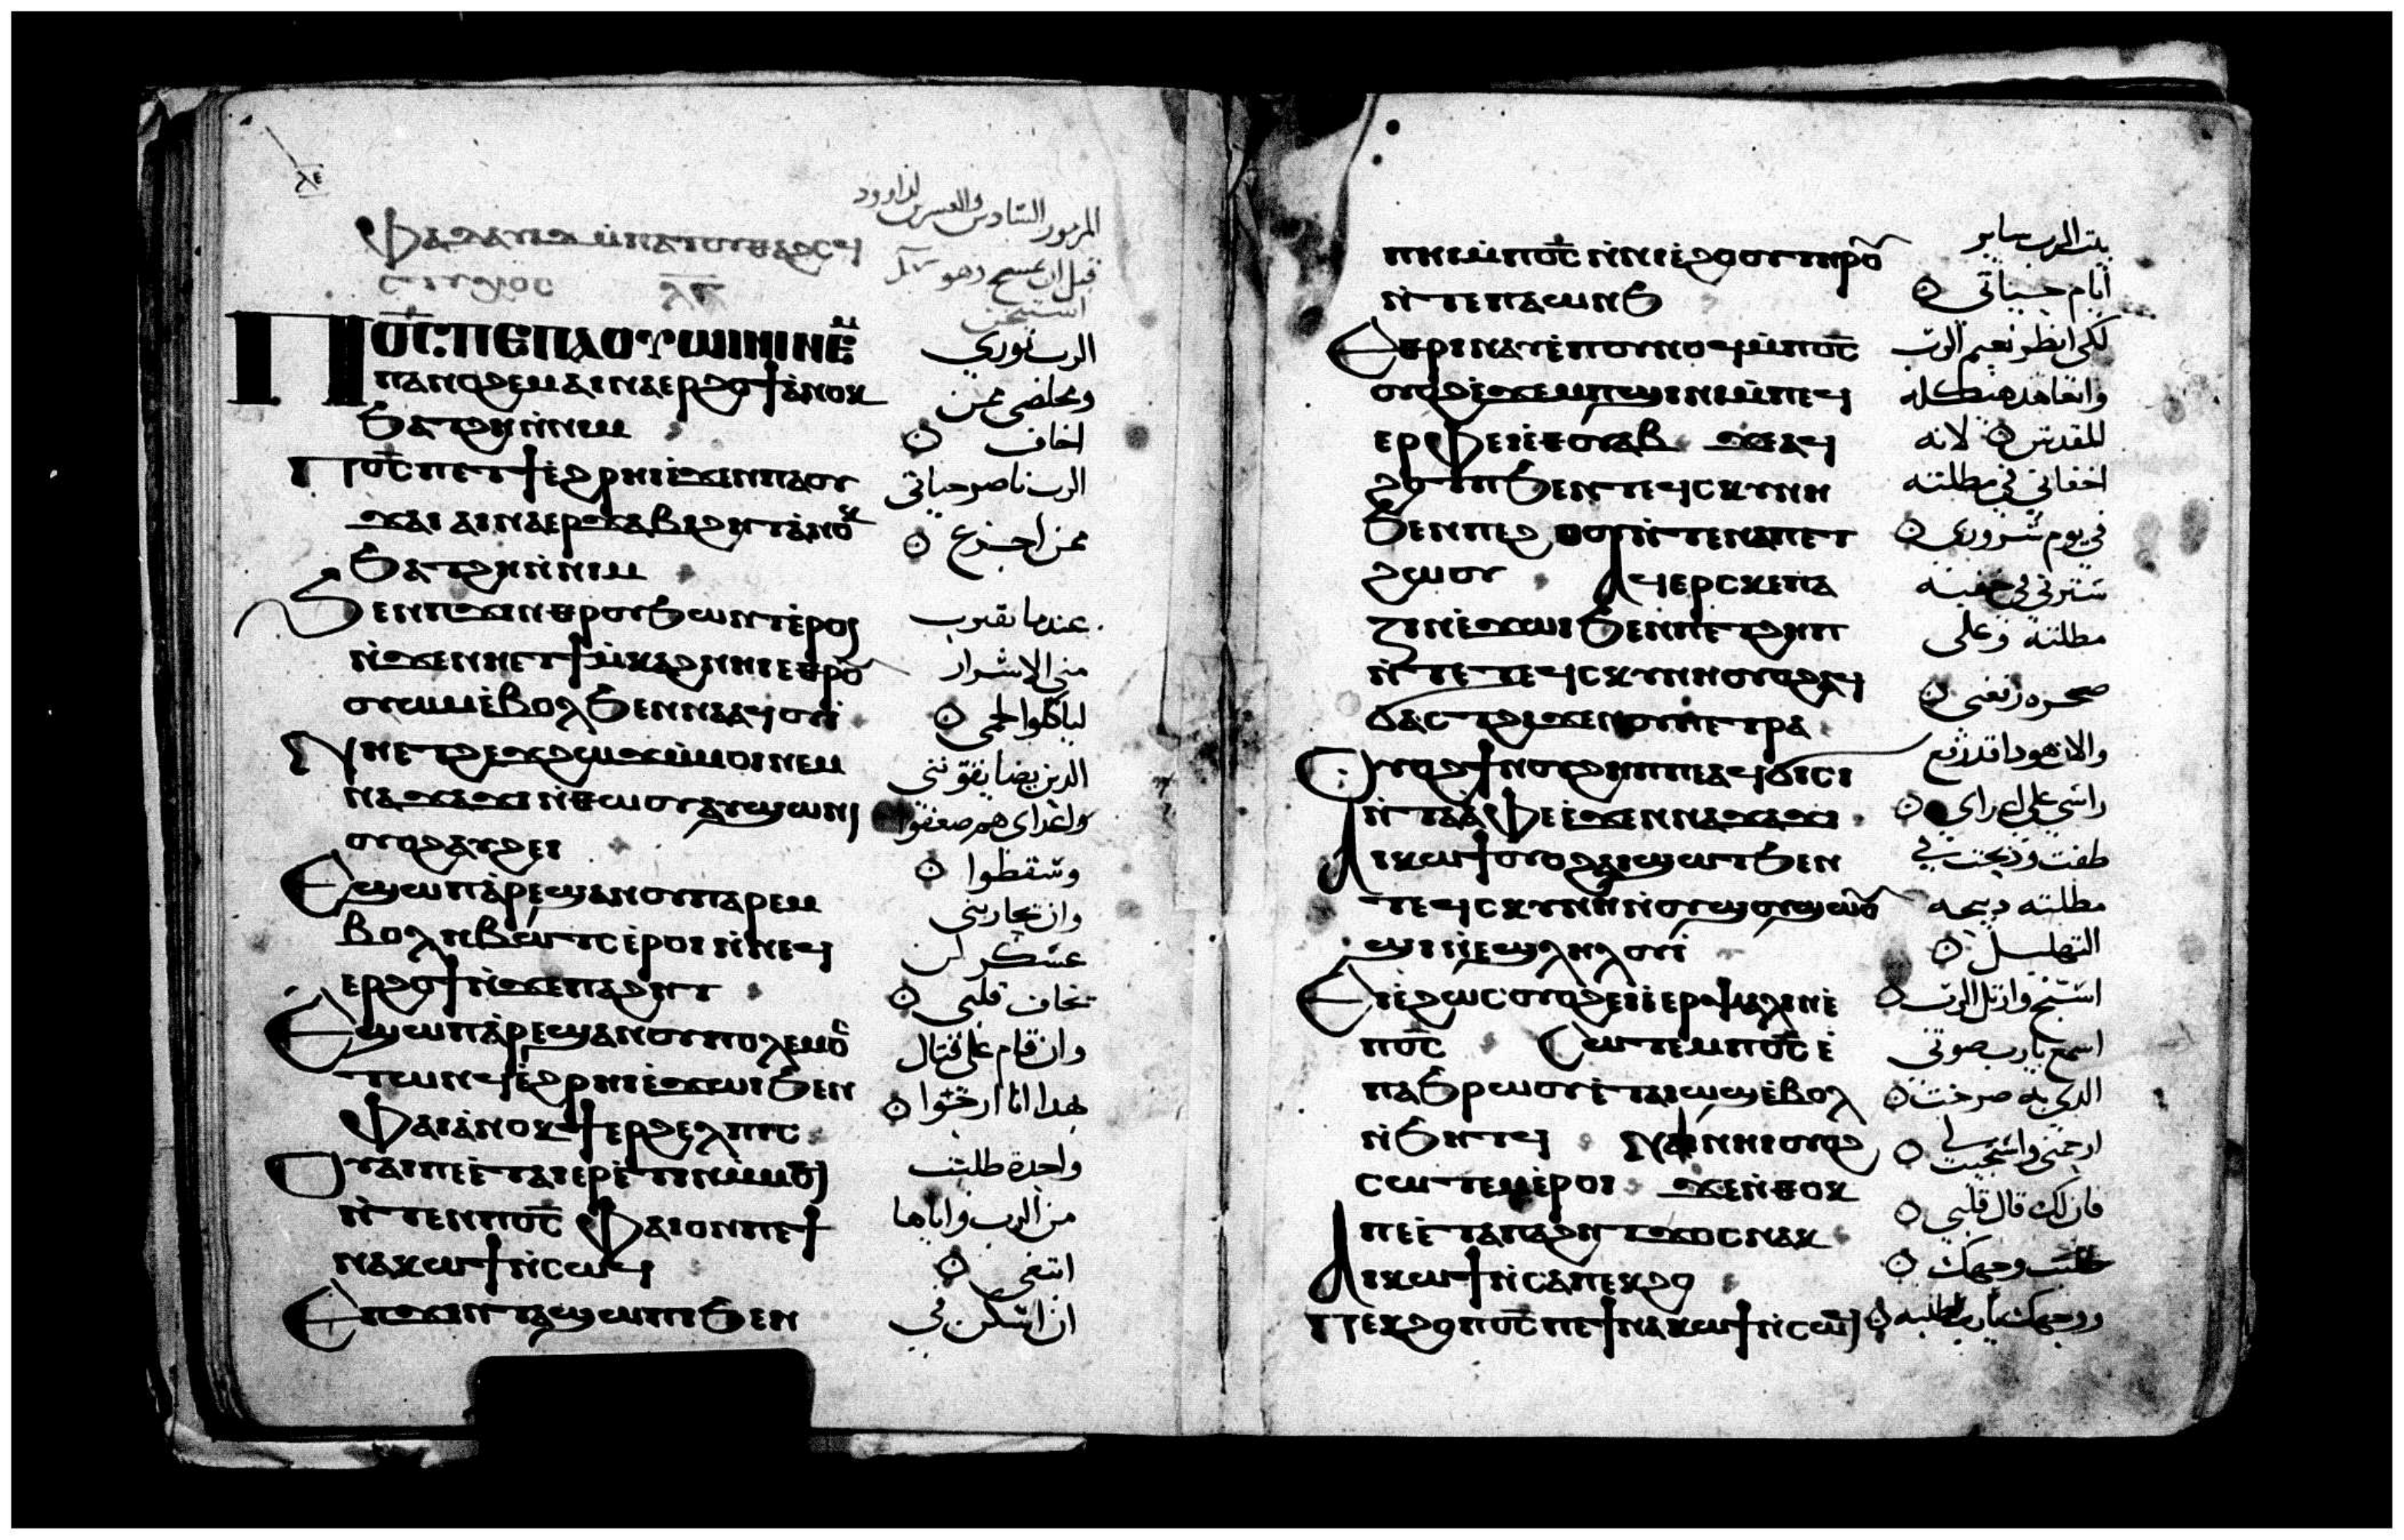 ⲗⲉ
Ⲫⲁⲇⲁⲩⲓⲇ ⲙ̀ⲡⲁⲧⲟⲩⲑⲁϩⲥϥ
المزمور السادس والعشرين لداوود
قبل ان يمسح وهو
Ⲡⲟ̅ⲥ̅ ⲡⲉ ⲡⲁⲟⲩⲱⲓⲛⲓ ⲛⲉⲙ
الرب نوري
ⲡⲁⲛⲟϩⲉⲙ ⲁⲓⲛⲁⲉⲣϩⲟϯ ⲁ̀ⲛⲟⲕ
ومخلصي ممن
ϧⲁⲧϩⲏ ⲛ̀ⲛⲓⲙ
اخاف
Ⲡⲟ̅ⲥ̅ ⲡⲉⲧϯ ⲉ̀ϩⲣⲏⲓ ⲉ̀ϫⲉⲛ ⲡⲁⲱⲛ
الرب ناصر حياتي
ϫⲁⲓ ⲁⲓⲛⲁⲉⲣϫⲁⲃϩⲏⲧ ⲁ̀ⲛⲟⲕ
ممن اجزع
ϧⲁⲧϩⲏ ⲛ̀ⲛⲓⲙ
Ϧⲉⲛ ⲡϫⲓⲛⲑⲣⲟⲩϧⲱⲛⲧ ⲉ̀ⲣⲟⲓ
عندما تقترب
ⲛ̀ϫⲉ ⲛⲏⲉⲧϯⲙ̀ⲕⲁϩ ⲛⲏⲓ ⲉⲑⲣⲟⲩ
مني الاشرار
ⲟⲩⲱⲙ ⲉ̀ⲃⲟⲗ ϧⲉⲛ ⲛⲁⲁϥⲟⲩⲓ̀
لياكلوا لحمي
Ⲛⲏⲉⲧϩⲉϫϩⲱϫ ⲙ̀ⲙⲟⲓ ⲛⲉⲙ
الذين يضايقونني
ⲛⲁϫⲁϫⲓ ⲛ̀ⲑⲱⲟⲩ ⲁⲩϣⲱⲛⲓ
واعداي هم ضعفوا
ⲟⲩⲟϩ ⲁⲩϩⲉⲓ
وسقطوا
Ⲉϣⲱⲡ ⲁ̀ⲣⲉϣⲁⲛ ⲟⲩⲡⲁⲣⲉⲙ
وان يحاربني
ⲃⲟⲗⲏ ⲃⲱⲧⲥ ⲉ̀ⲣⲟⲓ ⲛ̀ⲛⲉϥ
عسكر لن
ⲉⲣϩⲟϯ ⲛ̀ϫⲉ ⲡⲁϩⲏⲧ
يخاف قلبي
Ⲉϣⲱⲡ ⲁ̀ⲣⲉϣⲁⲛ ⲟⲩⲡⲟⲗⲉⲙⲟⲥ
وان قام علي قتال
ⲧⲱⲛϥ ⲉ̀ϩⲣⲏⲓ ⲉ̀ϫⲱⲓ ϧⲉⲛ
بهذا انا ارجوا
ⲫⲁⲓ ⲁ̀ⲛⲟⲕ ϯⲉⲣϩⲉⲗⲡⲓⲥ
Ⲟⲩⲁⲓ ⲡⲉ ⲉ̀ⲧⲁⲓⲉⲣⲉ̀ⲧⲓⲛ ⲙ̀ⲙⲟϥ
واحدة طلبت
ⲛ̀ⲧⲉⲛ Ⲡⲟ̅ⲥ̅ ⲫⲁⲓ ⲟⲛ ⲡⲉϯ
من الرب واياها
ⲛⲁⲕⲱϯ ⲛ̀ⲥⲱϥ
ابتغي
Ⲉⲡϫⲓⲛⲧⲁϣⲱⲡⲓ ϧⲉⲛ
ان اسكن في
ⲡⲏⲓ ⲙ̀Ⲡⲟ̅ⲥ̅ ⲛ̀ⲛⲓⲉ̀ϩⲟⲟⲩ ⲧⲏⲣⲟⲩ
بيت الرب ساير
ⲛ̀ⲧⲉ ⲡⲁⲱⲛϧ
أيام حياتي
Ⲉⲑⲣⲓⲛⲁⲩ ⲉ̀ⲡⲟⲩⲛⲟϥ ⲙ̀Ⲡⲟ̅ⲥ̅
لكي انظر نعيم الرب
ⲟⲩⲟϩ ⲉ̀ϫⲉⲙⲡϣⲓⲛⲓ ⲙ̀ⲡⲉϥ
واتعاهد هيكله
ⲉⲣⲫⲉⲓ ⲉⲑⲟⲩⲁⲃ ϫⲉ ⲁϥ
المقدس لانه
ϩⲟⲡⲧ ϧⲉⲛ ⲧⲉϥⲥⲕⲩⲛⲏ
اخفاني في مظلته
ϧⲉⲛ ⲡⲉϩⲟⲟⲩ ⲛ̀ⲧⲉ ⲛⲁⲡⲉⲧ
في يوم شروري
ϩⲱⲟⲩ Ⲁϥⲉⲣⲥⲕⲉⲡⲁ
سترني في خفية
ⲍⲓⲛ ⲉ̀ϫⲱⲓ ϧⲉⲛ ⲡⲉⲧϩⲏⲡ
مظلته وعلى
ⲛ̀ⲧⲉ ⲧⲉϥⲥⲕⲩⲛⲏ ⲟⲩⲟϩ ⲁϥ
صخرة رفعني
ϭⲁⲥⲧ ϩⲓϫⲉⲛ ⲟⲩⲡⲉⲧⲣⲁ
Ⲟⲩⲟϩ ϯⲛⲟⲩ ϩⲏⲡⲡⲉ ⲁϥϭⲓⲥⲓ
والان هوذا قد رفع
ⲛ̀ⲧⲁⲁ̀ⲫⲉ ⲉ̀ϫⲉⲛ ⲛⲁϫⲁϫⲓ
راسي على اعداي
Ⲁⲓⲕⲱϯ ⲟⲩⲟϩ ⲁⲓϣⲱⲧ ϧⲉⲛ
طفت وذبحت في
ⲧⲉϥⲥⲕⲩⲛⲏ ⲛ̀ⲟⲩϣⲟⲩϣⲱⲟⲩ
مظلته ذبيحة
ϣⲓ ⲛ̀ⲉϣⲗⲏⲗⲟⲩⲓ̀
التهليل
Ⲉⲓⲉ̀ϩⲱⲥ ⲟⲩⲟϩ ⲉⲓⲉ̀ⲉⲣⲯⲁⲗⲓⲛ ⲉ̀
اسبح وارتل الرب
Ⲡⲟ̅ⲥ̅ Ⲥⲱⲧⲉⲙ Ⲡⲟ̅ⲥ̅ ⲉ̀
اسمع يارب صوتي
ⲡⲁϧⲣⲱⲟⲩ ⲉ̀ⲧⲁⲓⲱϣ ⲉ̀ⲃⲟⲗ
الذي به صرخت
ⲛ̀ϧⲏⲧϥ Ⲛⲁⲓ ⲛⲏⲓ ⲟⲩⲟϩ
ارحمني واستجيب لي
ⲥⲱⲧⲉⲙ ⲉ̀ⲣⲟⲓ ϫⲉ ⲛ̀ⲑⲟⲕ
فان لك قال قلبي
ⲡⲉ ⲉ̀ⲧⲁ ⲡⲁϩⲏⲧ ϫⲟⲥ ⲛⲁⲕ
طلبت وجهك
Ⲁⲓⲕⲱϯ ⲛ̀ⲥⲁ ⲡⲉⲕϩⲟ
Ⲡⲉⲕϩⲟ Ⲡⲟ̅ⲥ̅ ⲡⲉϯⲛⲁⲕⲱϯ ⲛ̀ⲥⲱϥ
ووجهك يارب اطلبه